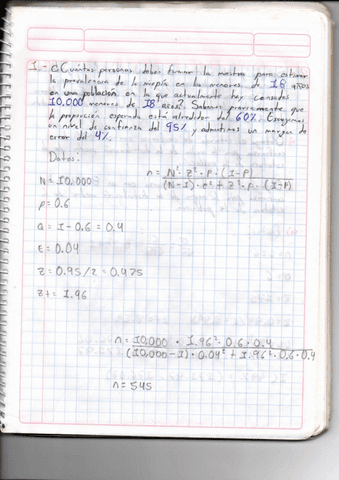 1.- ¿Cuántas personas deben formar la muestra para estimar
la prevalencia de la miopía en la menores de 16 años
en una población en la que actualmente hay censados
10,000 menores de 18 años? Sabemos previamente que
la proporción esperada está alrededor del 60%. Exigimos
un nivel de confianza del 95% y admitimos un margen de
error del 4%.
Datos:
n = N · Z² · P · (1-P) / (N-1) · e² + Z² · P · (1-P)
N = 10,000
P = 0.6
Q = 1 - 0.6 = 0.4
E = 0.04
Z = 0.95/2 = 0.475
Z± = 1.96
n = 10,000 · 1.96² · 0.6 · 0.4 / (10,000 - 1) · 0.04² + 1.96² · 0.6 · 0.4
n = 545